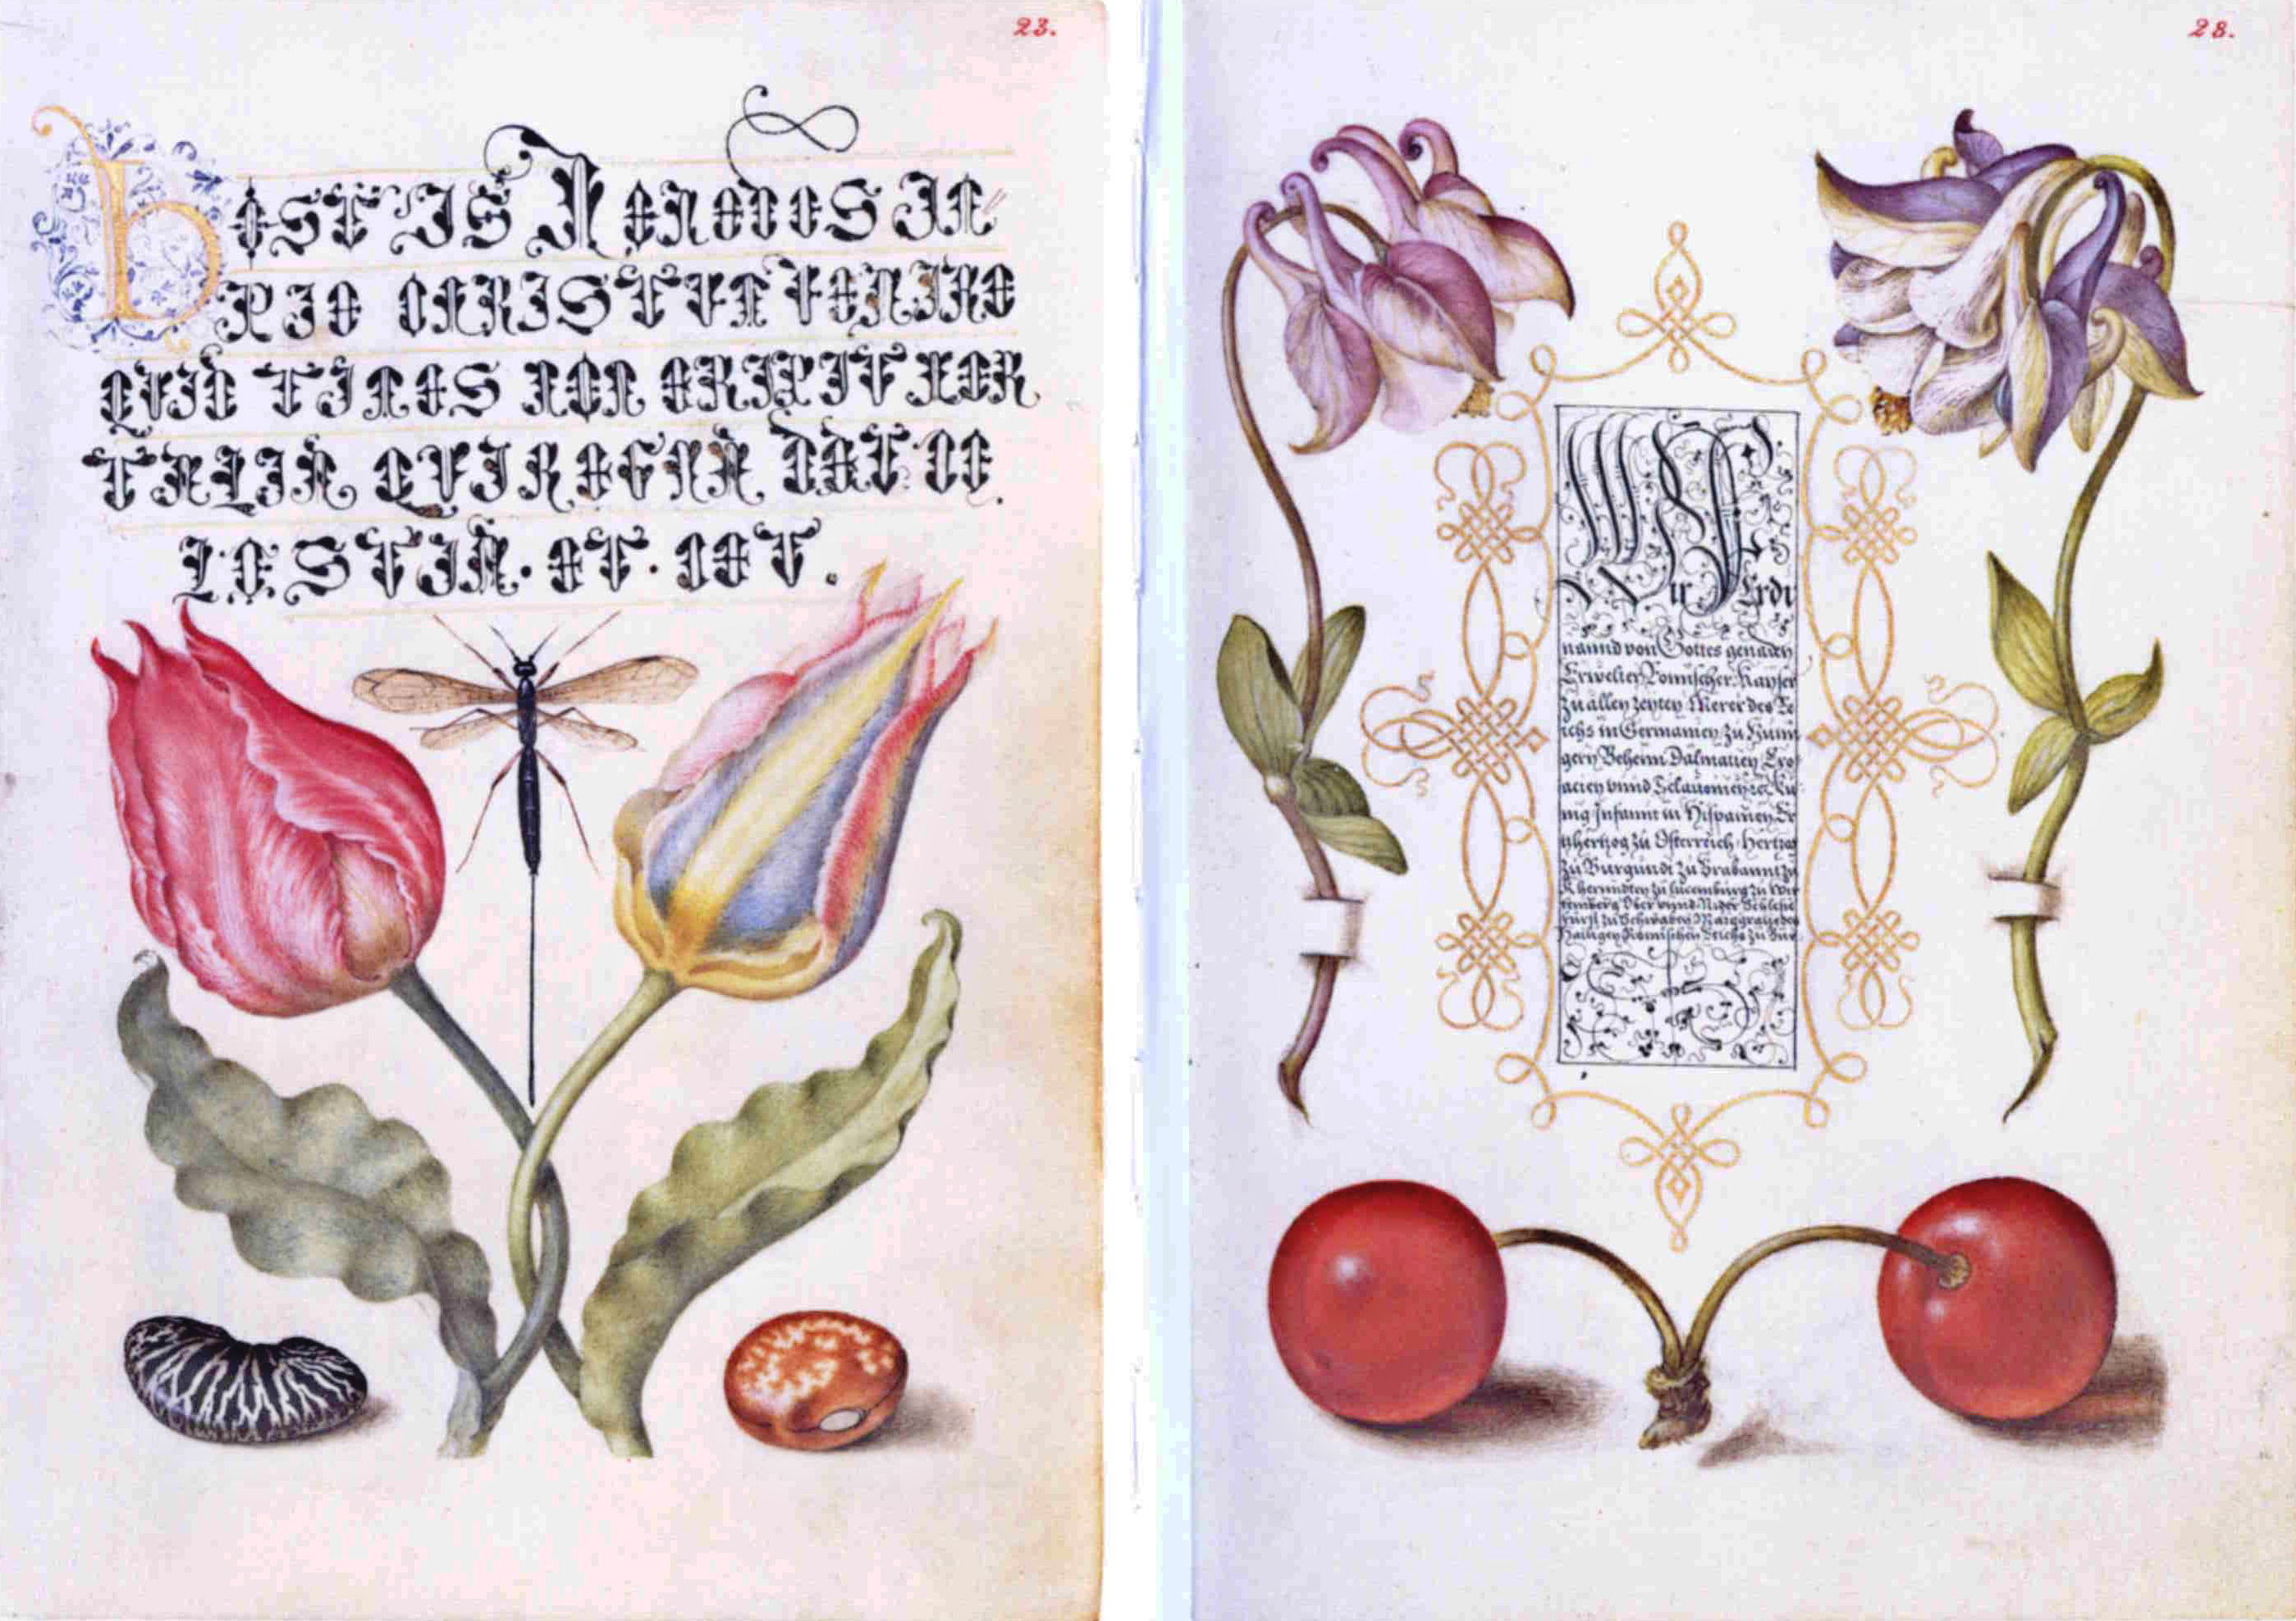 23.
HOSTIS HERODES IM
PIE CHRISTVM VENIRE
QVID TIMES NON ERIPIT MOR
TALIA QVI REGNA DAT CE
LESTIA. ET. CET.
28.
Wir Ferdi
nannd von Gottes genaden
Erwelter Romischer Kayser
zu allen zeyten Merer des Re
ichs in Germanien zu Hun
gern Beheim Dalmatien Cro
acien vnnd Sclauonien Ku
nig Infannt in Hispanien Er
tzhertzog zu Osterreich Hertzog
zu Burgundi zu Brabannt zu
Kherrndten zu Lucemburg zu Wir
temberg Ober vnnd Nider Schlesie
Furst zu Schwaben Marggraue des
Hailigen Romischen Reichs zu Bur